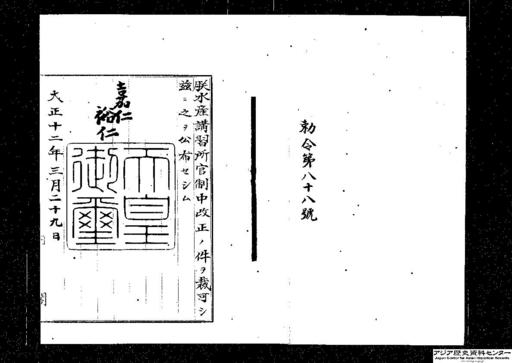 勅令第八十八號
朕水産講習所官制中改正ノ件ヲ裁可シ
茲ニ之ヲ公布セシム
嘉仁
裕仁
天皇
御璽
大正十二年三月二十九日
アジア歴史資料センター
Japan Center for Asian Historical Records